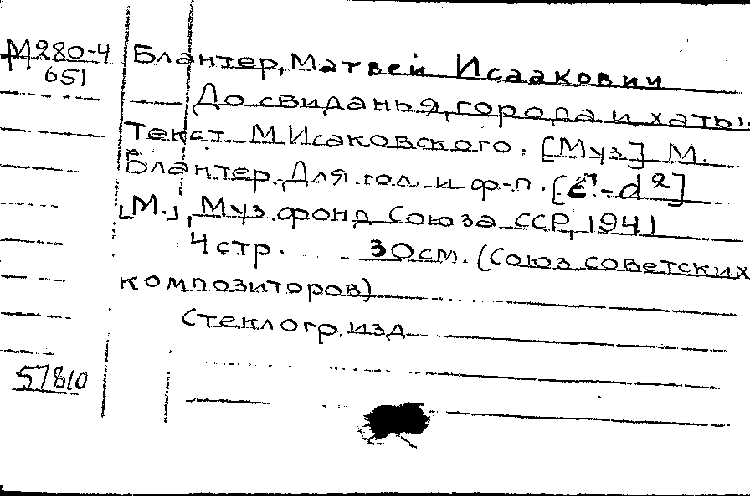 М280-4
651
Блантер, Матвей Исаакович
До свиданья, города и хаты.
Текст М. Исаковского. [Муз] М.
Блантер. Для гол. и ф-п. [c¹-d²]
[М.], Муз. фонд Союза ССР, 1941
4 стр. 30 см. (Союз советских
композиторов)
Стеклогр. изд
57810